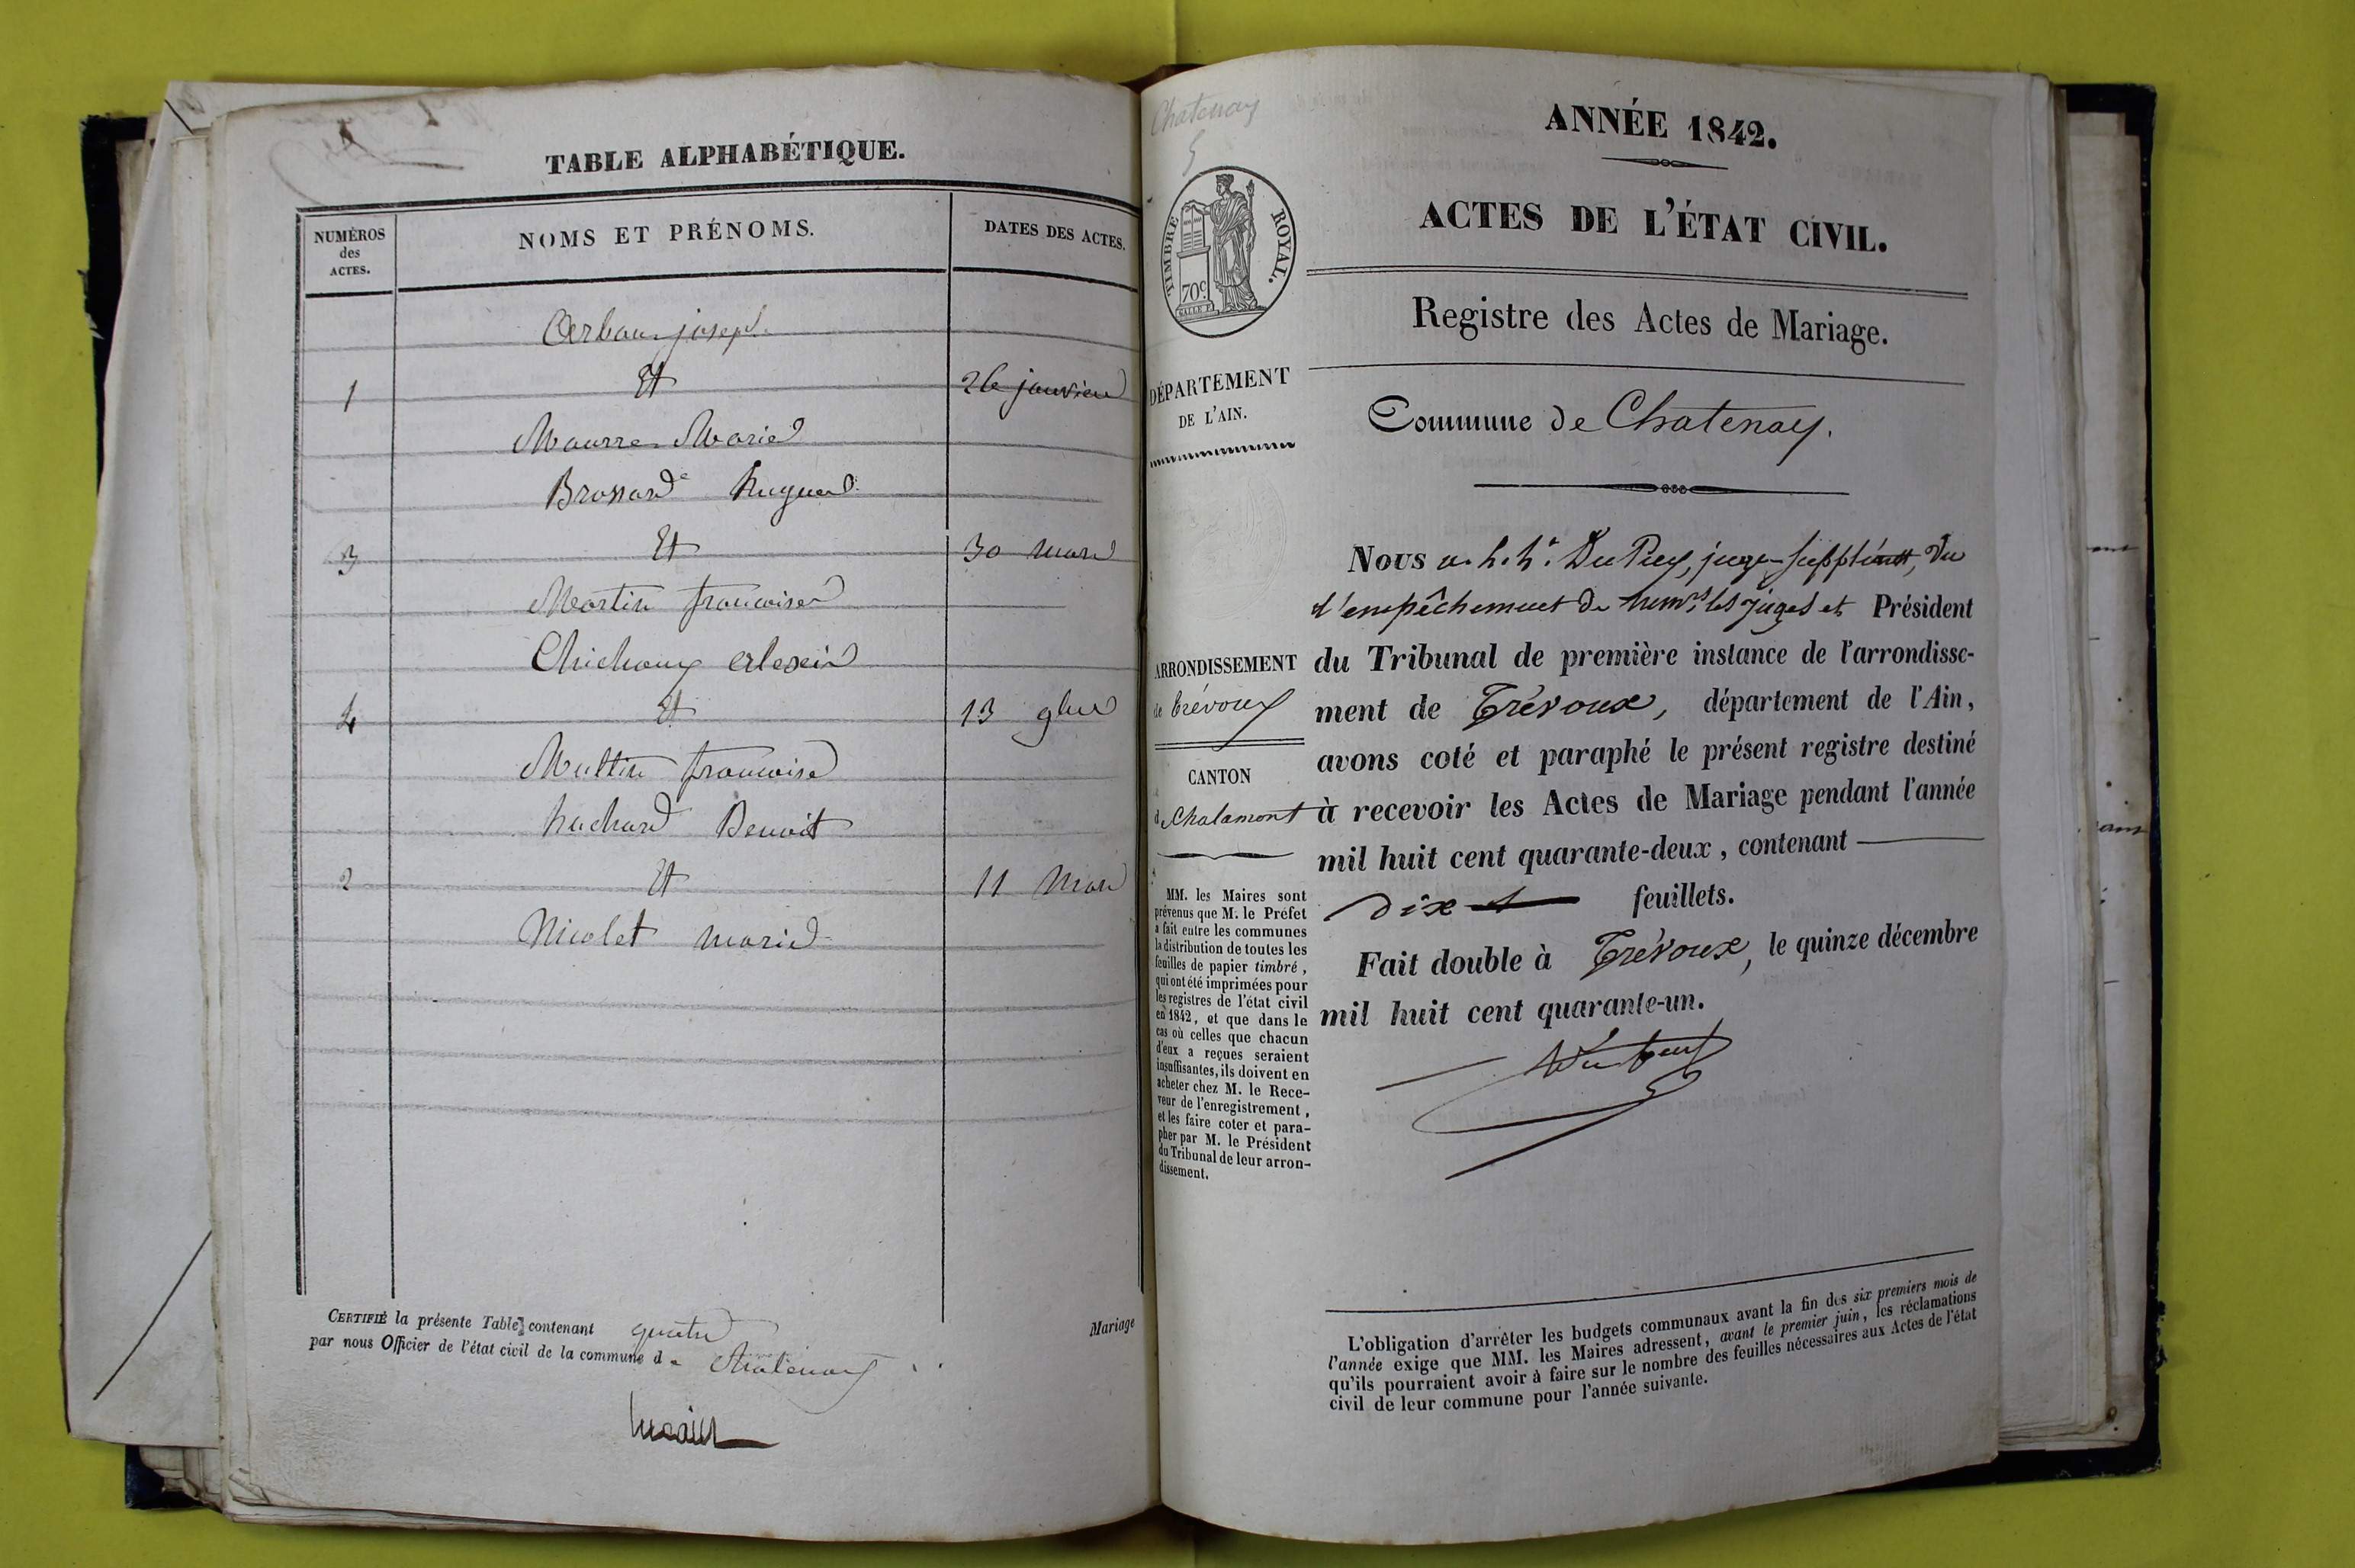 TABLE ALPHABÉTIQUE.
NUMÉROS
des
ACTES.
NOMS ET PRÉNOMS.
DATES DES ACTES.
joseph
1 Et 26 janvier
Maurre Marie
Brossard hugues
3 Et 30 mars
Martin francoise
Chichoux alexis
4 Et 13 9bre
Multin francoise
huchard Benoit
2 Et 11 Mars
Nicolet marie
CERTIFIÉ la présente Table contenant quatre
par nous Officier de l'état civil de la commune de Chatenay
Mariage
Chatenay
5
TIMBRE ROYAL.
70c
ANNÉE 1842.
ACTES DE L'ÉTAT CIVIL.
Registre des Actes de Mariage.
DÉPARTEMENT
DE L'AIN.
Commune de Chatenay.
ARRONDISSEMENT
de trévoux
CANTON
de Chalamont
MM. les Maires sont
prévenus que M. le Préfet
a fait entre les communes
la distribution de toutes les
feuilles de papier timbré,
qui ont été imprimées pour
les registres de l'état civil
en 1842, et que dans le
cas où celles que chacun
d'eux a reçues seraient
insuffisantes, ils doivent en
acheter chez M. le Rece-
veur de l'enregistrement,
et les faire coter et para-
pher par M. le Président
du Tribunal de leur arron-
dissement.
Nous DuPuy, juge suppléant, vu
l'empêchement de les juges et Président
du Tribunal de première instance de l'arrondisse-
ment de Trévoux, département de l'Ain,
avons coté et paraphé le présent registre destiné
à recevoir les Actes de Mariage pendant l'année
mil huit cent quarante-deux, contenant
dix feuillets.
Fait double à Trévoux, le quinze décembre
mil huit cent quarante-un.
L'obligation d'arrêter les budgets communaux avant la fin des six premiers mois de
l'année exige que MM. les Maires adressent, avant le premier juin, les réclamations
qu'ils pourraient avoir à faire sur le nombre des feuilles nécessaires aux Actes de l'état
civil de leur commune pour l'année suivante.